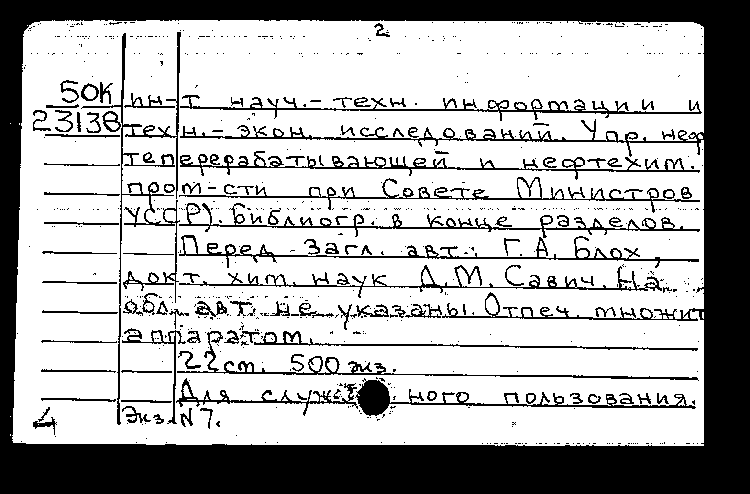 2
50К ин-т науч.-техн. информации и
23138 техн.-экон. исследований. Упр. неф
теперерабатывающей и нефтехим.
пром-сти при Совете Министров
УССР). Библиогр. в конце разделов.
Перед загл. авт.: Г. А. Блох,
докт. хим. наук Д. М. Савич. На
обл. авт. не указаны. Отпеч. множит
аппаратом.
22 см. 500 экз.
Для служ ного пользования.
4 Экз. N 7.